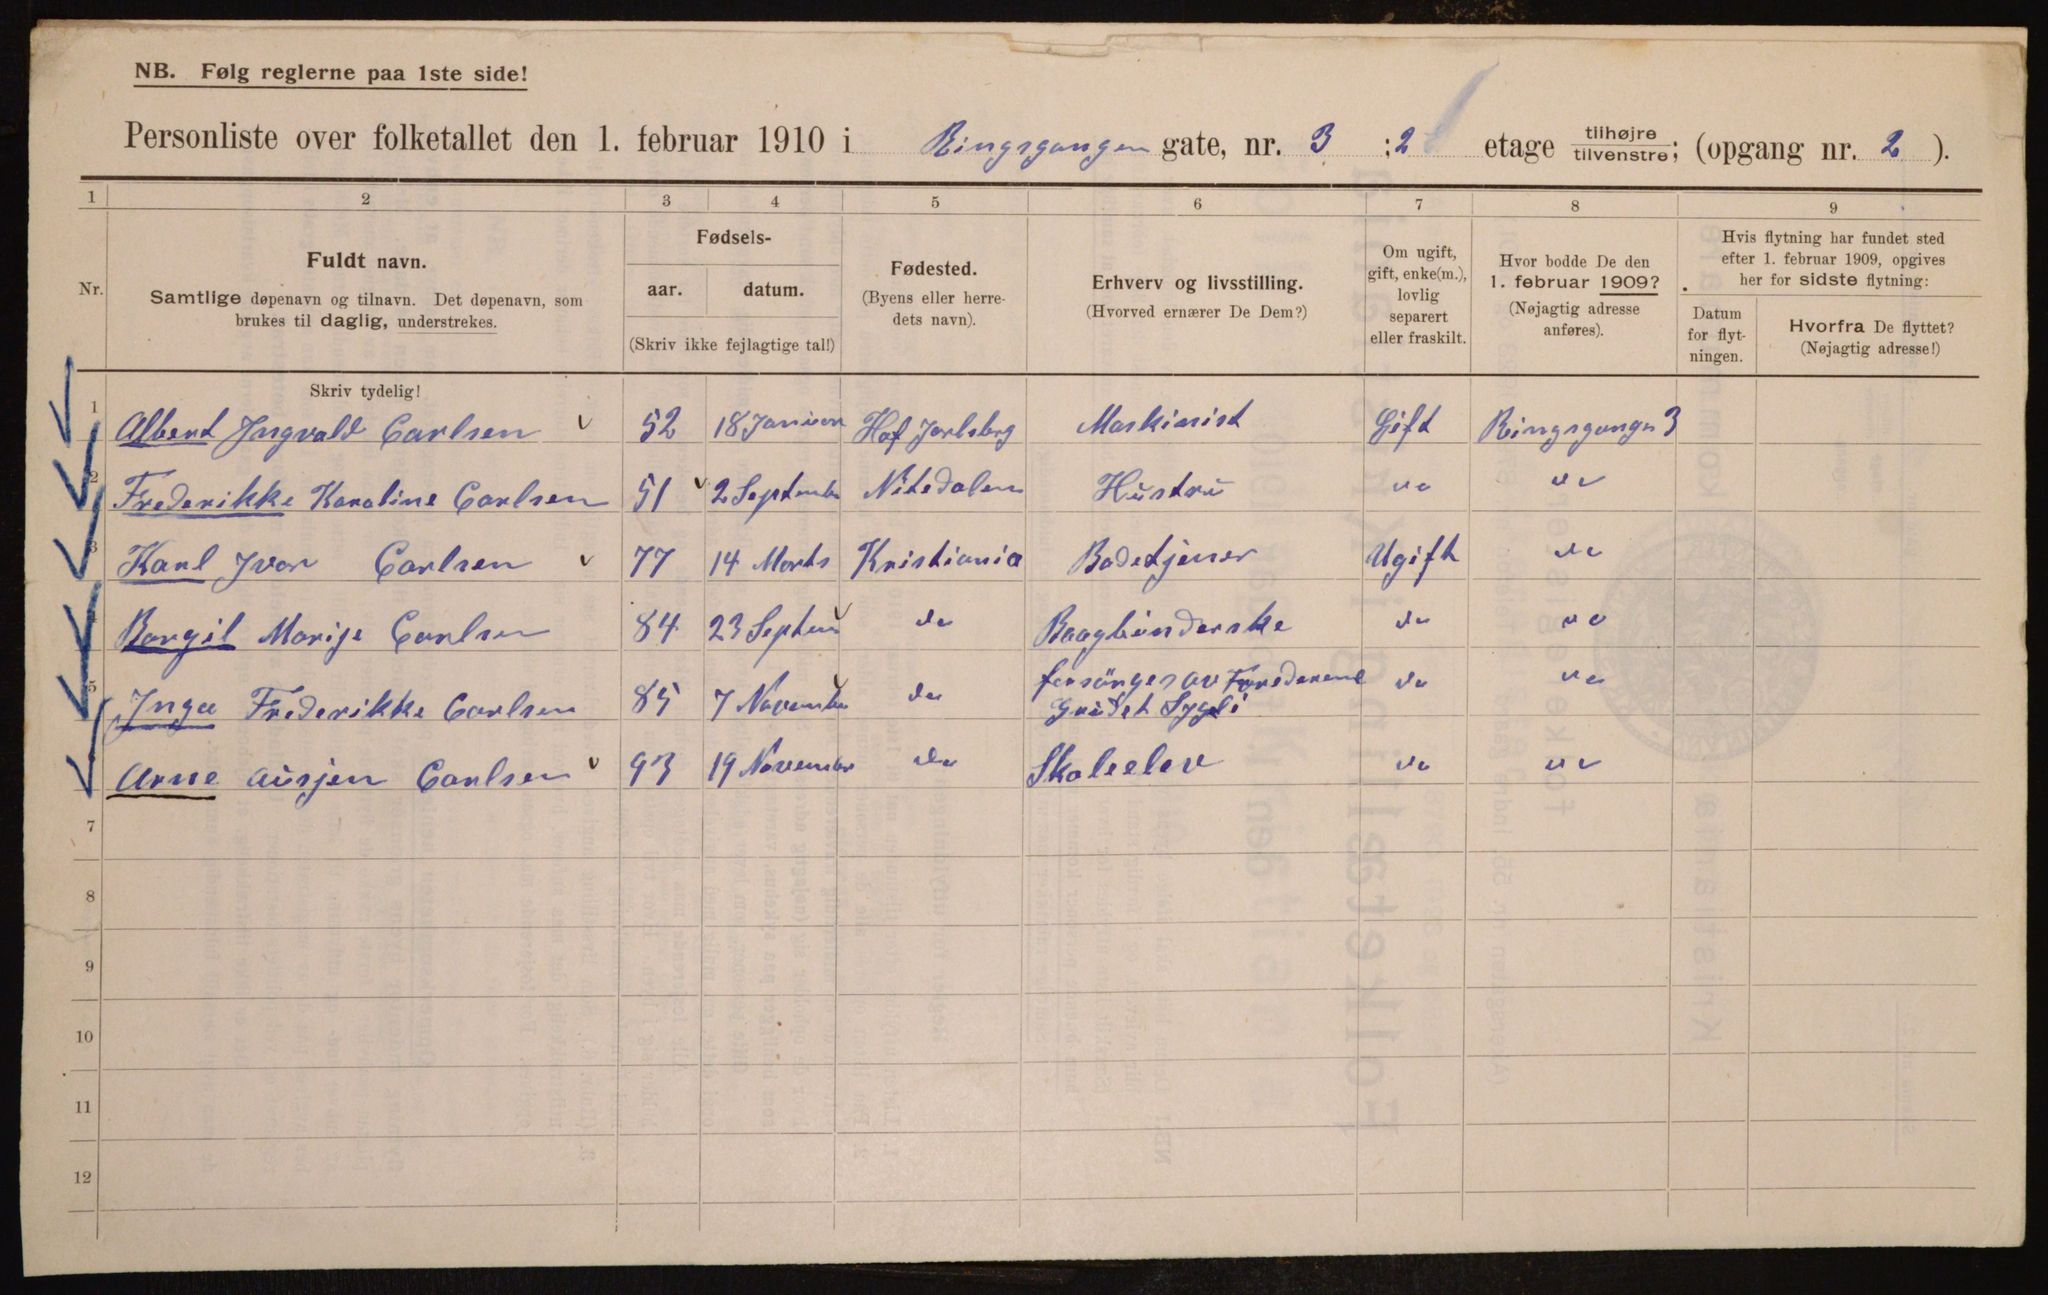 NB. Følg reglerne paa 1ste side!
Personliste over folketallet den 1. februar 1910 i Ringsgangen gate, nr. 3 ; 2 etage tilhøjre tilvenstre; (opgang nr. 2 ).
1 2 3 4 5 6 7 8 9
Nr.
Fuldt navn.
Samtlige døpenavn og tilnavn. Det døpenavn, som
brukes til daglig, understrekes.
Fødsels-
aar. datum.
(Skriv ikke fejlagtige tal!)
Fødested.
(Byens eller herre-
dets navn).
Erhverv og livsstilling.
(Hvorved ernærer De Dem?)
Om ugift,
gift, enke(m.),
lovlig
separert
eller fraskilt.
Hvor bodde De den
1. februar 1909?
(Nøjagtig adresse
anføres).
Hvis flytning har fundet sted
efter 1. februar 1909, opgives
her for sidste flytning:
Datum
for flyt-
ningen.
Hvorfra De flyttet?
(Nøjagtig adresse!)
Skriv tydelig!
1 Albert Ingvald Carlsen 52 18 Januar Hof Jarlsberg Maskinist Gift Ringsgangen 3
2 Frederikke Karoline Carlsen 51 2 Septembe Nitedalen Hustru do do
3 Karl Ivar Carlsen 77 14 Marts Kristiania Badetjener Ugift do
4 Borgil Marije Carlsen 84 23 Septem do Baagbinderske do do
5 Inga Frederikke Carlsen 85 7 Novembe do forsörges av Forederene do do
Grudet Sygli
Arne Carlsen 93 19 November do Skoleelev do do
7
8
9
10
11
12